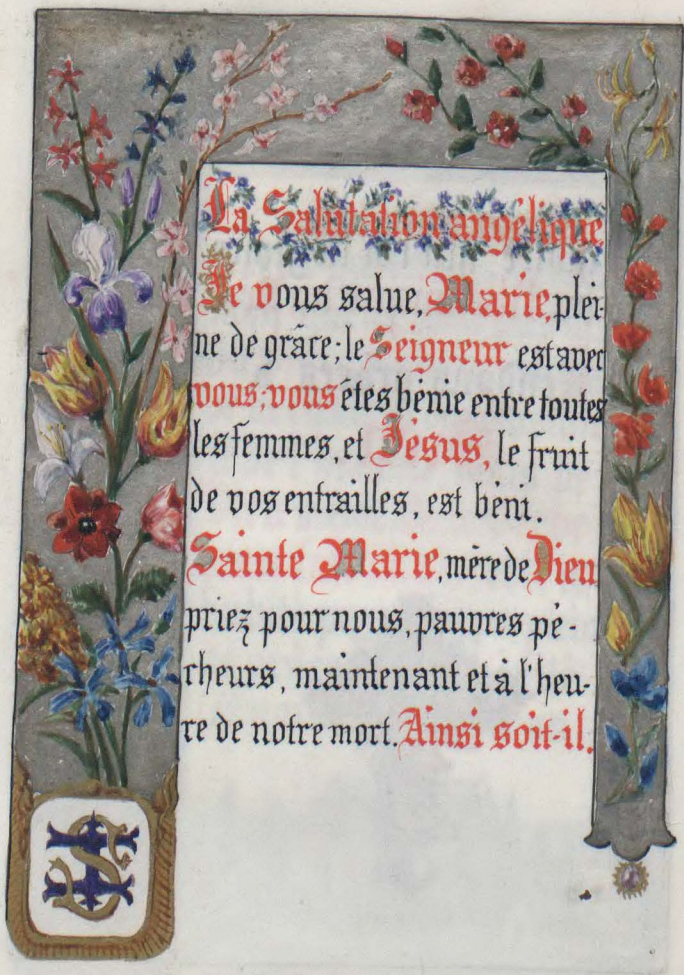 La Salutation angélique
Je vous salue, Marie, plei-
ne de grâce; le Seigneur est avec
vous; vous êtes bénie entre toutes
les femmes, et Jésus, le fruit
de vos entrailles, est béni.
Sainte Marie, mère de Dieu
priez pour nous, pauvres pé-
cheurs, maintenant et à l'heu-
re de notre mort. Ainsi soit-il.